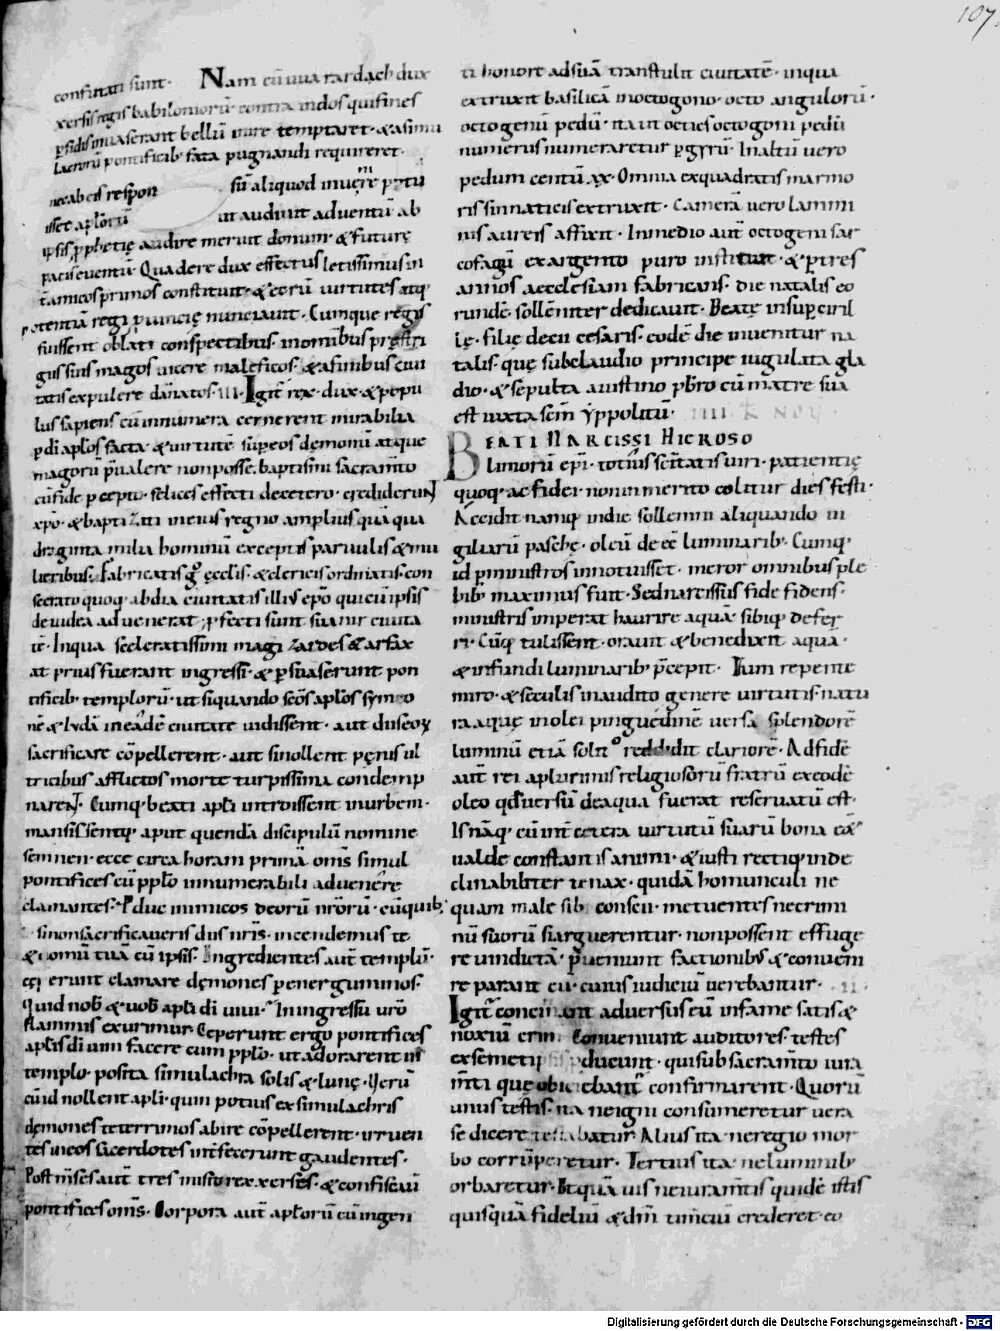 107.
confutati sunt. Nam cũ uuarardach dux
xersis regis babiloniorũ contra indos qui fines
ꝑsidis inuaserant bellũ inire temptaret. & a simu
lacrorũ pontificib; fata pugnandi requireret.
nec ab eis respon sũ aliquod inuenire potu
isset aplorũ ut audiuit aduentũ ab
ipsis ꝓphetię audire meruit donum. & futurę
pacis euentũ. Qua de re dux effectus letissimus in
t amicos primos constituit. & eorũ uirtutes atq;
potentiã regi ꝓuincię nunciauit. Cumque regis
fuissent oblati conspectibus. in omnibus pręstri
gus suis magos uicere maleficos. & a finibus ciui
tatis expulere dãnatos. III. Igit rex. dux. & popu
lus sapiens cũ innumera cernerent mirabilia
ꝑ di aplos facta. & uirtutẽ suꝑ eos demonũ atque
magorũ p̃ualere non posse. baptismi sacramẽto
cũ fide ꝑcepto. felices effecti de cetero. crediderunt
xpo. & baptizati in eius regno amplius quã qua
draginta milia hominũ exceptis paruulis & mu
lieribus. Fabricatis g̊ ęcclis. & clericis ordinatis. con
secrato quoq; abdia ciuitatis illius epo qui cũ ipsis
de iudea aduenerat. ꝑfecti sunt suanir ciuita
tẽ. In qua sceleratissimi magi zardes & arfax
at prius fuerant ingressi. & ꝑsuaserunt pon
tificib; templorũ. ut si quando scõs aplos symeo
nẽ & iudã in eadẽ ciuitate uidissent. aut diis eos
sacrificare cõpellerent. aut si nollent pęnis ul
tricibus afflictos morte turpissima condemp
narent. Cumq; beati apli introissent in urbem.
mansissentq; aput quendã discipulũ nomine
semnen. ecce circa horam primã. oms simul
pontifices cũ pplo innumerabili aduenẽre
clamantes. ꝓduc inimicos deorũ nrorũ. cũ quib;
si non sacrificaueris diis nris. incendemus te
& domũ tuã cũ ipsis. Ingredientes aut templũ.
ceꝑerunt clamare demones ꝑ energuminos.
Quid nob & uob apli di uiui. In ingressu uro
flammis exurimur. Ceperunt ergo pontifices
aplis di uiui facere cum pplo. ut adorarent in
templo. posita simulachra solis & lunę. Uerũ
cũ id nollent apli. quin potius ex simulachris
demones teterrimos abire cõpellerent. irruen
tes in eos sacerdotes int̃fecerunt gaudentes.
Post m̃ses aut tres misit rex xerses. & confiscauit
pontifices oms. Corpora aut aplorũ cũ ingen
ti honore ad suã transtulit ciuitatẽ. in qua
extruxit basilicã in octogono. octo angulorũ.
octogenũ pedũ. ita ut octies octogeni pedũ
numerus numeraretur ꝑ gyrũ. In altũ uero
pedum centũ xx. Omnia ex quadratis marmo
ris sinnaticis extruxit. Camerã uero lammi
nis aureis affixit. In medio aut octogeni sar
cofagũ ex argento puro instituit. & ꝑ tres
annos aecclesiam fabricans. die natalis eo
rundẽ. sollemniter dedicauit. Beatę insuꝑ ciril
lę. filię decii cesaris. eodẽ die inuenitur na
talis. quę sub claudio principe iugulata gla
dio. & sepulta a iustino pbro cũ matre sua
est iuxta scm yppolitũ. IIII K NOV
BEATI NARCISSI HIEROSO
limorũ epi. totius scitatis uiri. patientię
quoq; ac fidei non inmerito colitur dies festi.
Accidit namq; in die sollemni aliquando ui
giliarũ paschę. oleũ deesse luminarib. Cumq;
id ꝑ ministros innotuisset. meror omnibus ple
bib; maximus fuit. Sed narcissus fide fidens.
ministris imperat haurire aquã. sibiq; defer
ri. Cũq; tulissent. orauit & benedixit aquã
& infundi luminarib; p̃cepit. Tum repente
miro. & seculis inaudito genere uirtutis natu
ra aquę in olei pinguedinẽ uersa splendorẽ
luminũ etiã solito reddidit clariorẽ. Ad fidẽ
aut rei a plurimis religiosorũ fratrũ ex eodẽ
oleo qd uersũ de aqua fuerat reseruatũ est.
Is nãq; cũ int cetera uirtutũ suarũ bona eẽt
ualde constantis animi. & iusti rectiq; inde
clinabiliter tenax. quidã homunculi ne
quam male sibi conscii. metuentes ne crimi
nũ suorũ si arguerentur. non possent effuge
re uindictã. p̃ueniunt factionib; & conueni
re parant eũ. cuius iudiciũ uerebantur. II.
Igit concinnant aduersus eũ infame satis &
noxiũ crim̃. Conueniunt auditores. testes
ex semetipsis ꝓducunt. qui sub sacramẽto iura
m̃ti que obiciebant confirmarent. Quorũ
unus testis. ita ne igni consumeretur uera
se dicere testabatur. Alius ita. ne regio mor
bo corrũperetur. Tertius ita ne luminib;
orbaretur. Et quãuis ne iuram̃tis quidẽ istis
quisquã fideliũ & dm̃ timentiũ crederet. eo
Digitalisierung gefördert durch die Deutsche Forschungsgemeinschaft - DFG